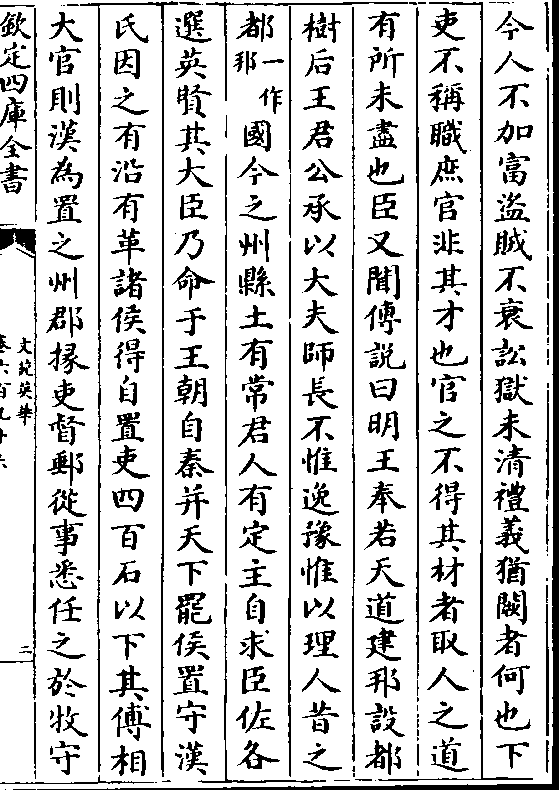 今人不加富盜賊不衰訟獄未清禮義猶闕者何也下
吏不稱職庶官非其才也官之不得其材者取人之道
有所未盡也臣又聞傅說曰明王奉若天道建邦設都
樹后王君公承以大夫師長不惟逸豫惟以理人昔之
都一作邦國今之州縣土有常君人有定主自求臣佐各
選英賢其大臣乃命于王朝自秦并天下罷侯置守漢
氏因之有沿有革諸侯得自置吏四百石以下其傅相
大官則漢為置之州郡掾吏督郵從事悉任之於牧守
欽定四庫全書
文苑英華
卷六百九十六
二